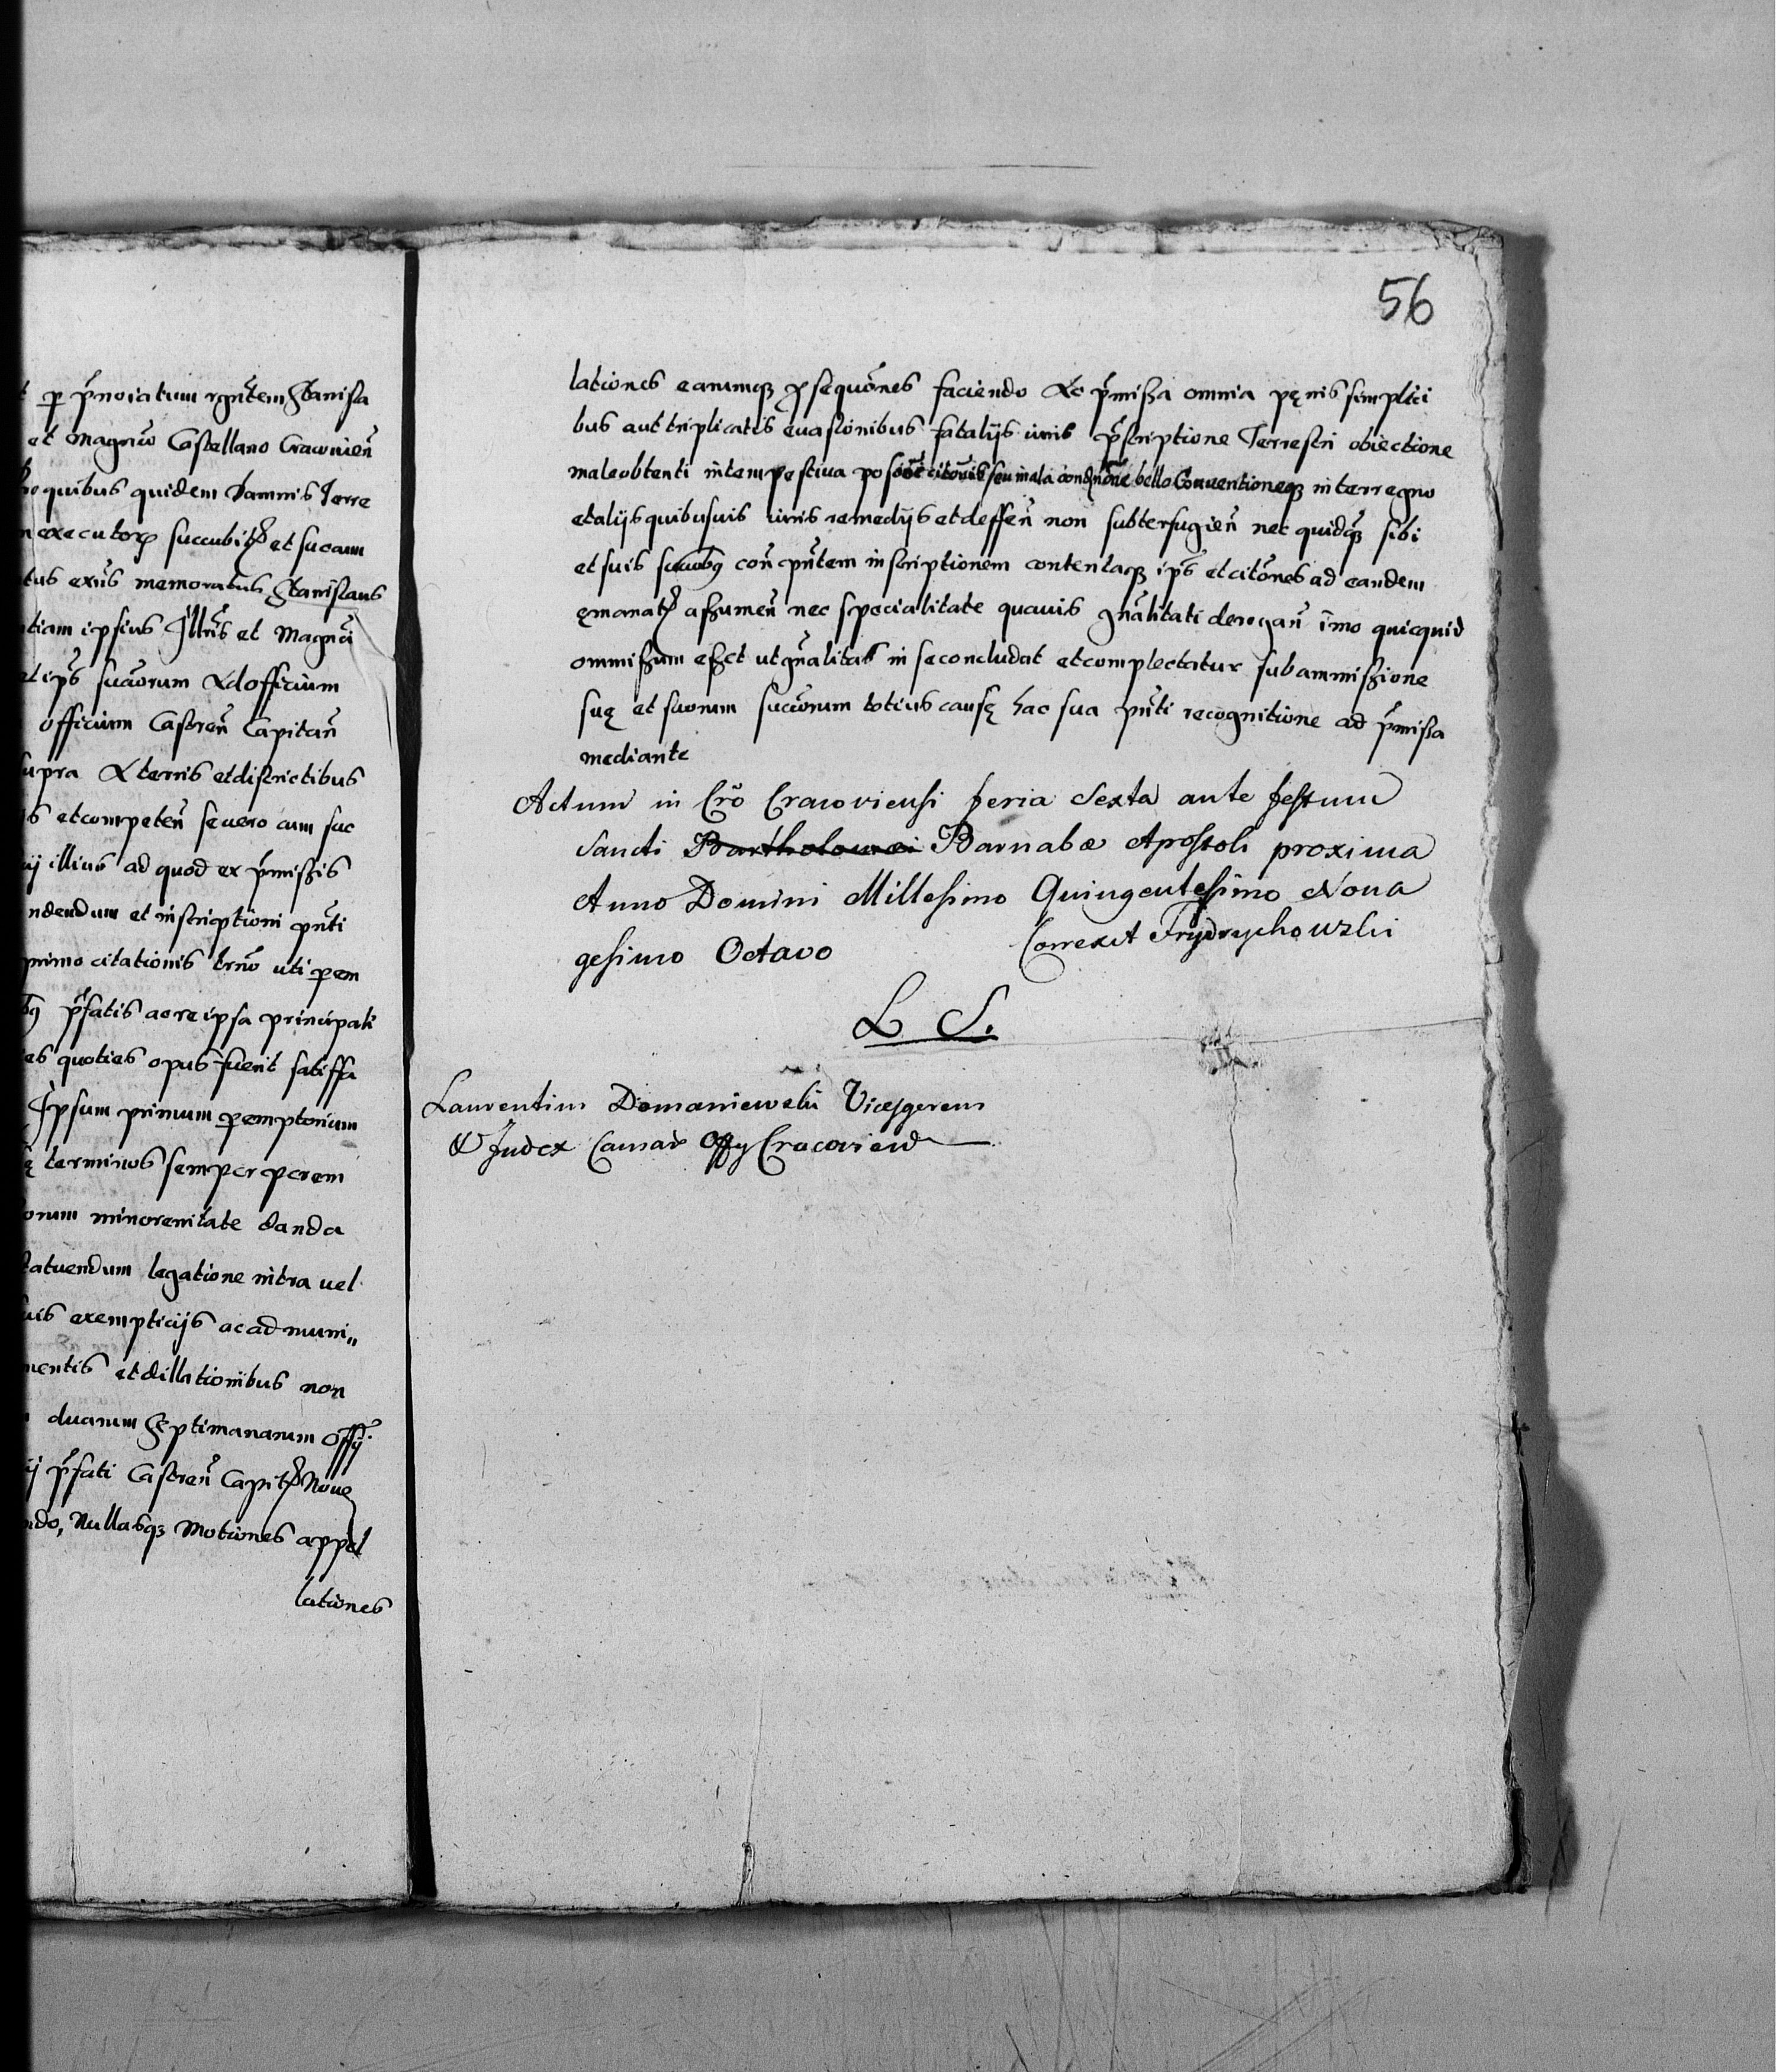 t p p̃noiatum rgñtem Stanisla
et Magnco Castellano Cracouien̄
quibus quidem damnis Terre
executorẽ succubit et sucaum
tus exñs memoratus Stanislaus
tiam ipsius Illris et Magnci
et ips̃ succorum Ad officium
officium Castren̄ Capitan̄
supra Ac terris et districtibus
is et competen̄ se vero cum suc
ij illius ad quod ex p̃missis
ndendum et inscriptioni pñti
primo citationis trno uti pem
p̃fatis ac re ipsa principali
es quoties opus fuerit satisfa
Ipsum primum pemptorium
terminos semper perem
orum minorenitate danda
statuendum legatione intra uel
uis exempticijs ac ad muni„
mentis et dillationibus non
duarum Septimanarum Offi
ij p̃fati Castren̄ Capit Noue
ndo, Nullasq3 Motiones appel
lationes
56
lationes earumq3 psequõnes faciendo Ac p̃missa omnia pęnis simplici
bus aut triplicatis euasionibus fatalijs iuris p̃scriptione Terrestri obiectione
male obtenti intempestiua posõõe citõnis seu mala condnõne bello Conuentioneq3 interregno
et alijs quibusuis iuris remedijs et deffen̄ non subterfugien̄ nec quidq3 sibi
et suis succobus con̄ pñtem inscriptionem contentaq3 ips̃ et citõnes ad eandem
ęmanat assumen̄ nec specialitate quauis gñalitati derogan̄ imo quicquid
ommissum esset ut gñalitas in se concludat et complectatur sub ammissione
suę et suorum succorum totius causę hac sua pñti recognitione ad p̃missa
mediante
Actum in Crõ Cracoviensi feria Sexta ante festum
Sancti Bartholomæi Barnabæ Apostoli proxima
Anno Domini Millesimo Quingentesimo Nona
gesimo Octavo
Correxit Frydrychowski
L S.
Laurentius Domaniewski Vicesgerens
& Judex Causar Offy Cracovien